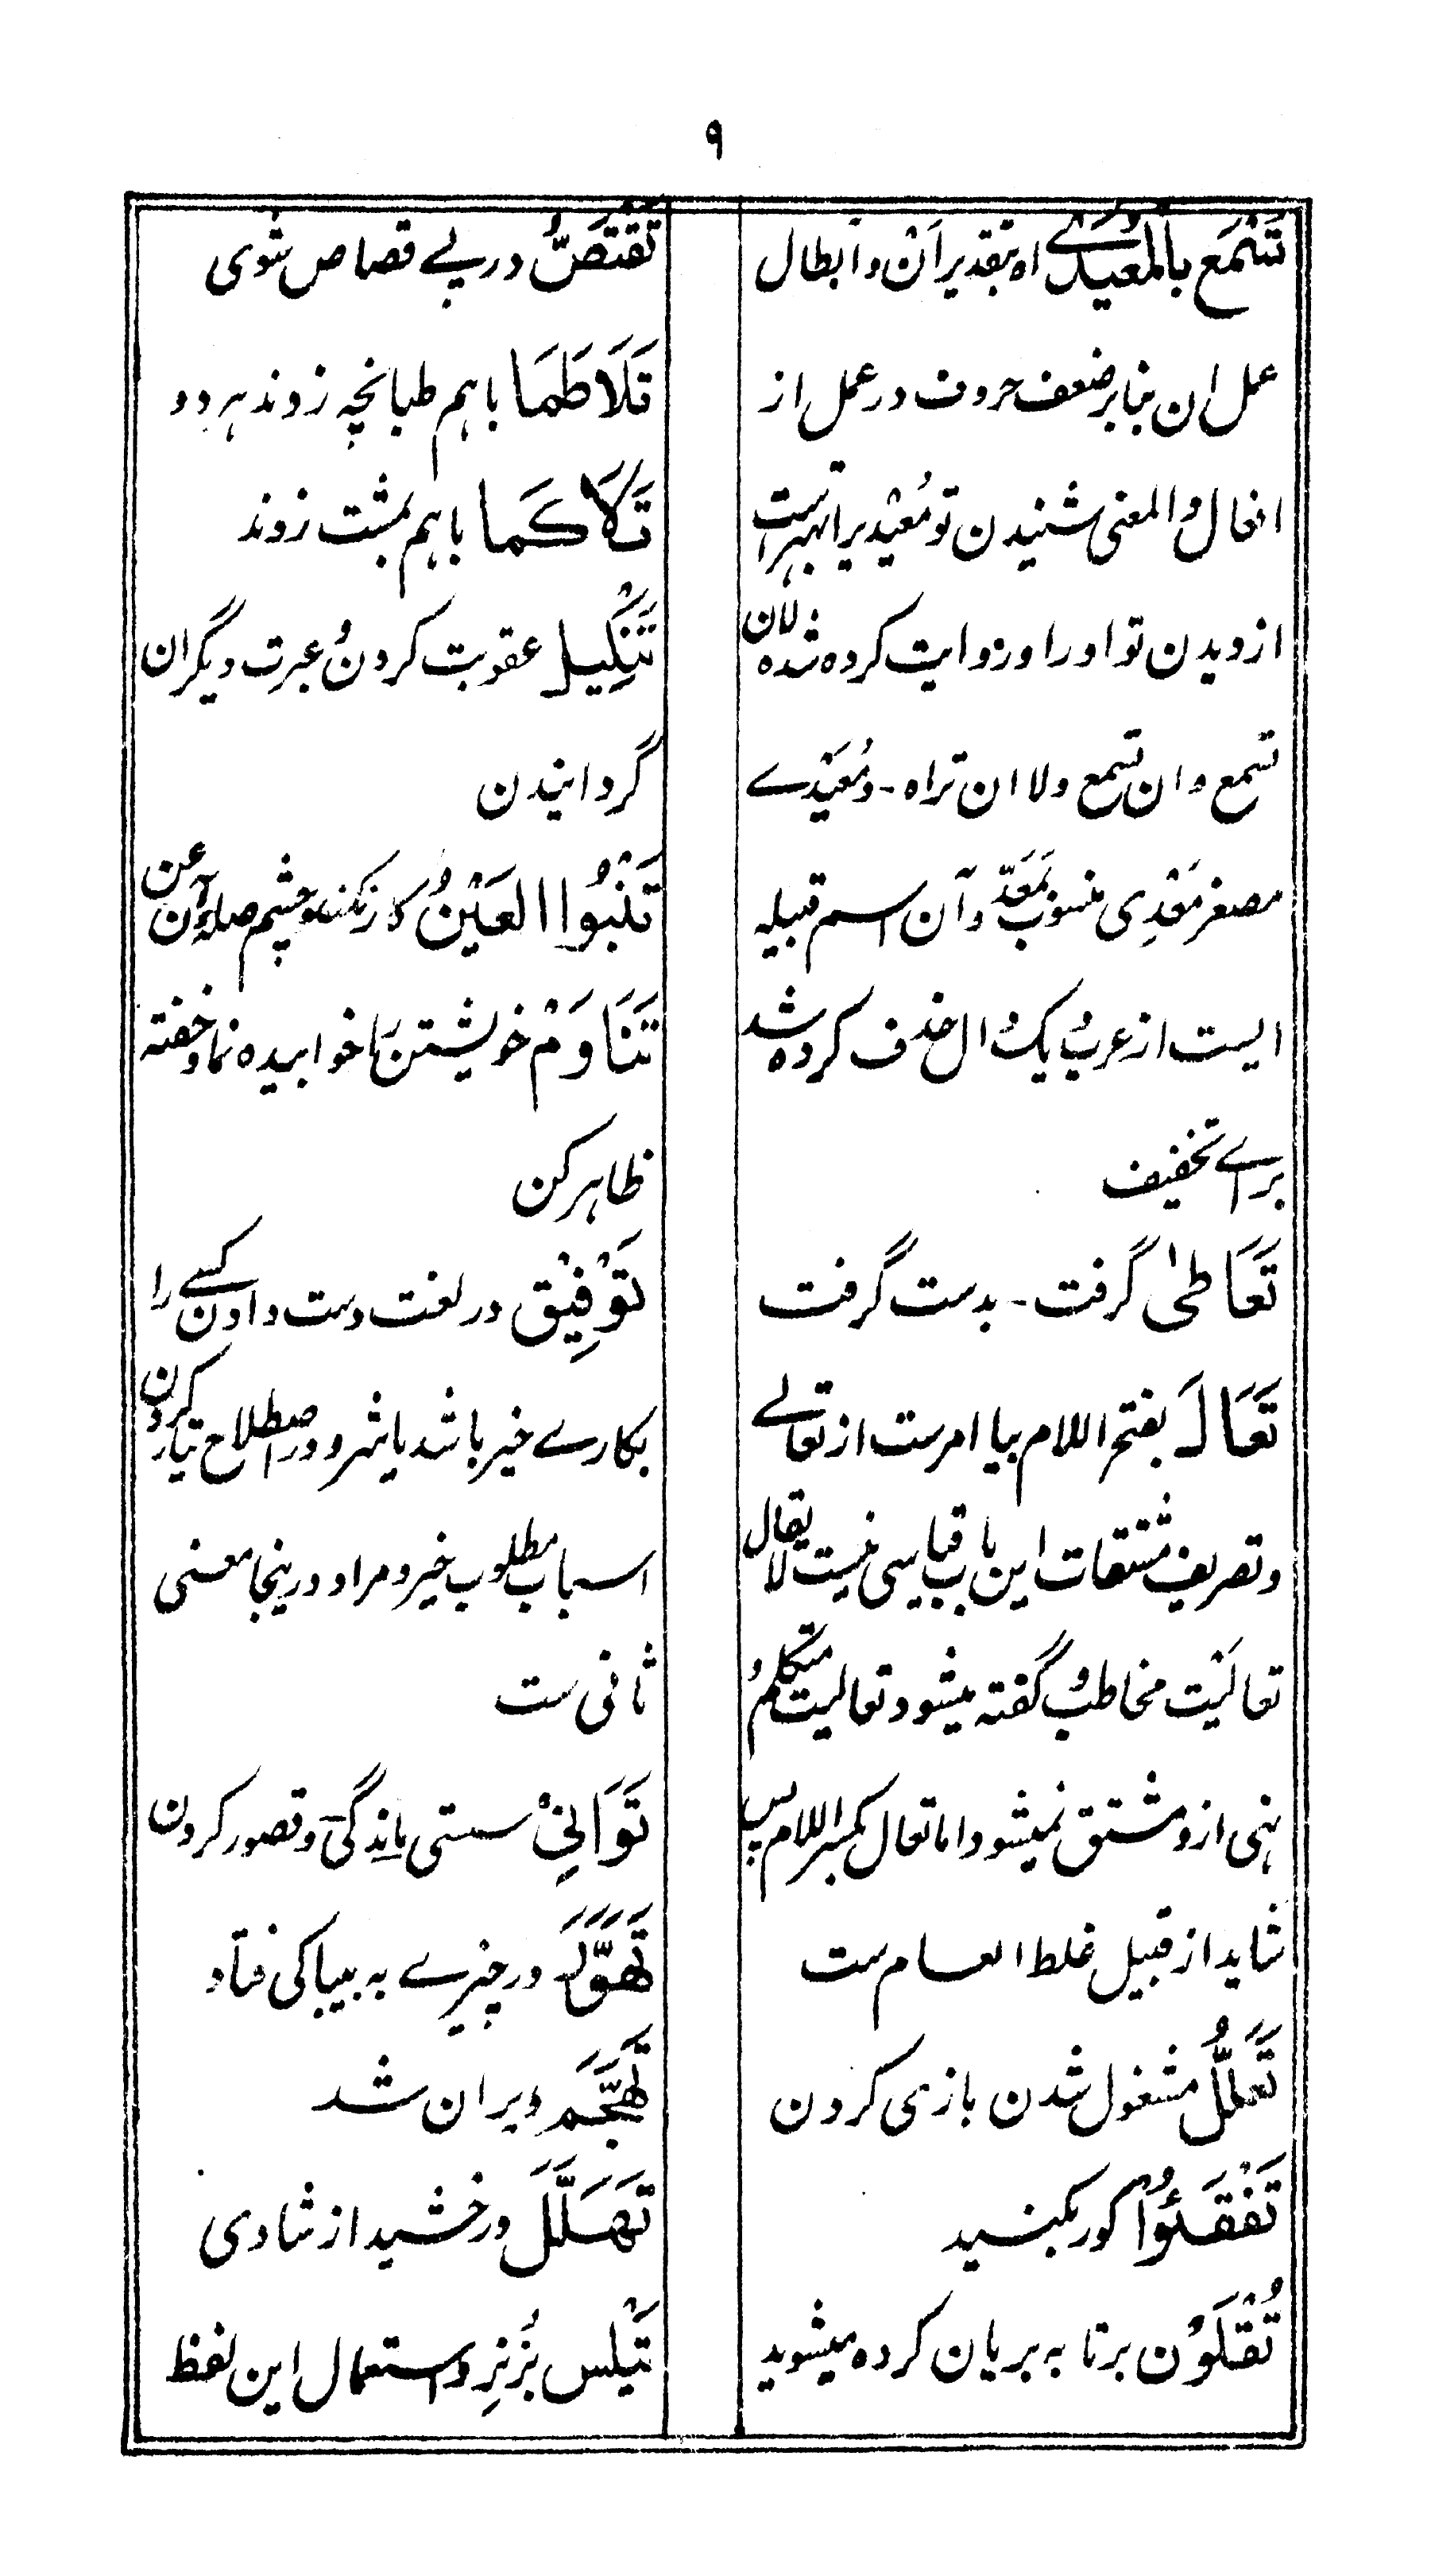 ۹
تَسْمَع بِالمُعَیْدِے اہ بتقدیر اَنْ وابطال
عمل ان بنا بر ضعف حروف در عمل از
افعال والمعنی شنیدن تو مُعَیْدیرا بہتر است
از دیدن تو او را و روایت کردہ شدہ لان
تسمع و ان تسمع ولا ان تراہ - و مُعَیْدے
مصغر مَعَدِی منسوب بَمَعَدّ و آن اسم قبیلہ
ایست از عرب و یک دال حذف کردہ شد
براے تخفیف
تَعَاطٰی گرفت - بدست گرفت
تَعَالَ بفتح اللام بیا امرست از تعالے
و تصریف مشتقات این باب قیاسی نیست لا یقال
تعالَیْت مخاطب و گفتہ میشود تعالیت متکلم و
نہی ازو مشتق نمیشود اما تعال بکسر اللام پس
شاید از قبیل غلط العام ست
تَعَلُّل مشغول شدن بازی کردن
تَفْقَئُوْا کور بکنید
تُقْلَوْن برتابہ بریان کردہ میشوید
تَقْتَصَّ درپے قصاص شوی
تَلَاطَمَا باہم طپانچہ زدند ہر دو
تَلَاكَمَا باہم بمشت زدند
تَنْکِیل عقوبت کردن و عبرت دیگران
گردانیدن
تَنْبُوا العَیْنُ کار نکند چشم صلہ آن عن
تَنَاوَمْ خویشتن را خوابیدہ نما و خفتہ
ظاہر کن
تَوْفِیْق در لغت دست دادن کسے را
بکارے خیر باشد یا شر و در اصطلاح تیار کردن
اسباب مطلوب خیر و مراد درینجا معنی
ثانی ست
تَوَانِیْ سستی ماندگی و قصور کردن
تَهَوَّرَ در چیزے بہ بیباکی فتاد
تَهَجَّمَ ویران شد
تَهَلَّلَ درخشید از شادی
تَیْس بُزِ نر و استعمال این لفظ